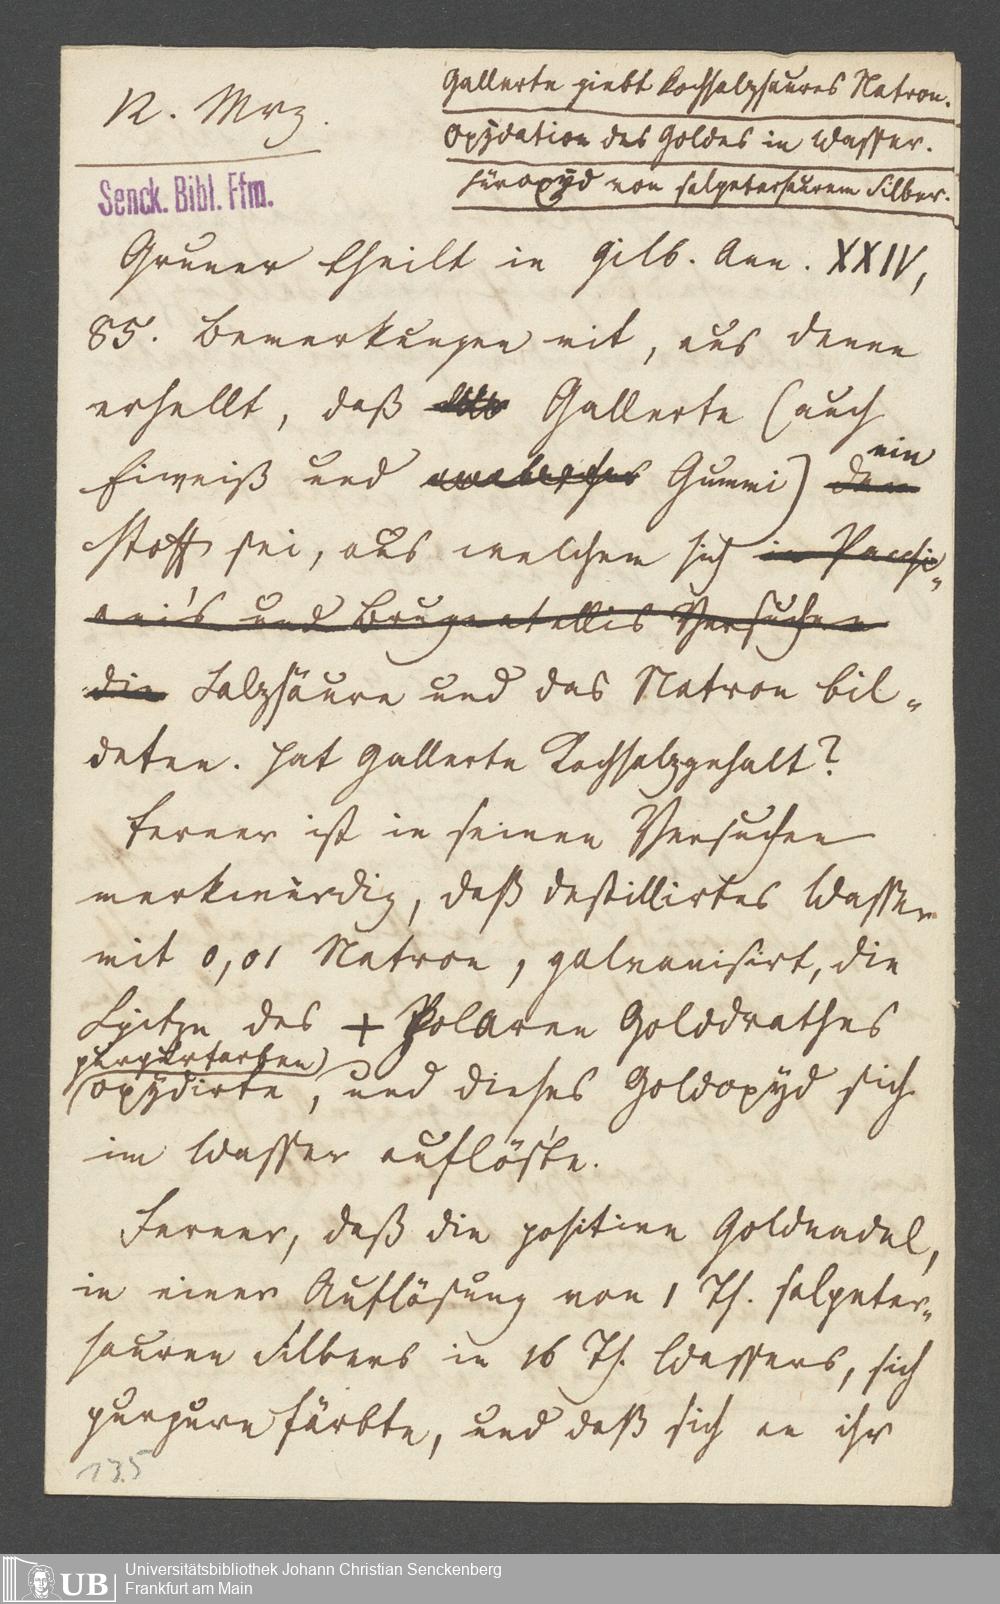 12. Mrz.
Gallerte giebt kochsalzsaures Natron.
Oxydation des Goldes in Wasser.
Füroxyd von salpetersaurem Silber.
Senck. Bibl. Ffm.
Gruner theilt in Gilb. Ann. XXIV,
85. Bemerkungen mit, aus denen
erhellt, daß Gallerte (auch
Eiweiß und Gummi) ein
den
Stoff sei, aus welchem sich in Pacchi-
ani's und Brugnatellis Versuchen
die Salzsäure und das Natron bil-
deten. Hat Gallerte Kochsalzgehalt?
Ferner ist in seinen Versuchen
merkwürdig, daß destillirtes Wasser
mit 0,01 Natron, galvanisirt, die
Spitze des + Polaren Golddrathes
purpurfarben)
(oxydirte, und dieses Goldoxyd sich
im Wasser auflöste.
Ferner, daß die positive Goldnadel,
in einer Auflösung von 1 Th. salpeter-
sauren Silbers in 16 Th. Wassers, sich
purpurn färbte, und daß sich an ihr
135
UB
Universitätsbibliothek Johann Christian Senckenberg
Frankfurt am Main